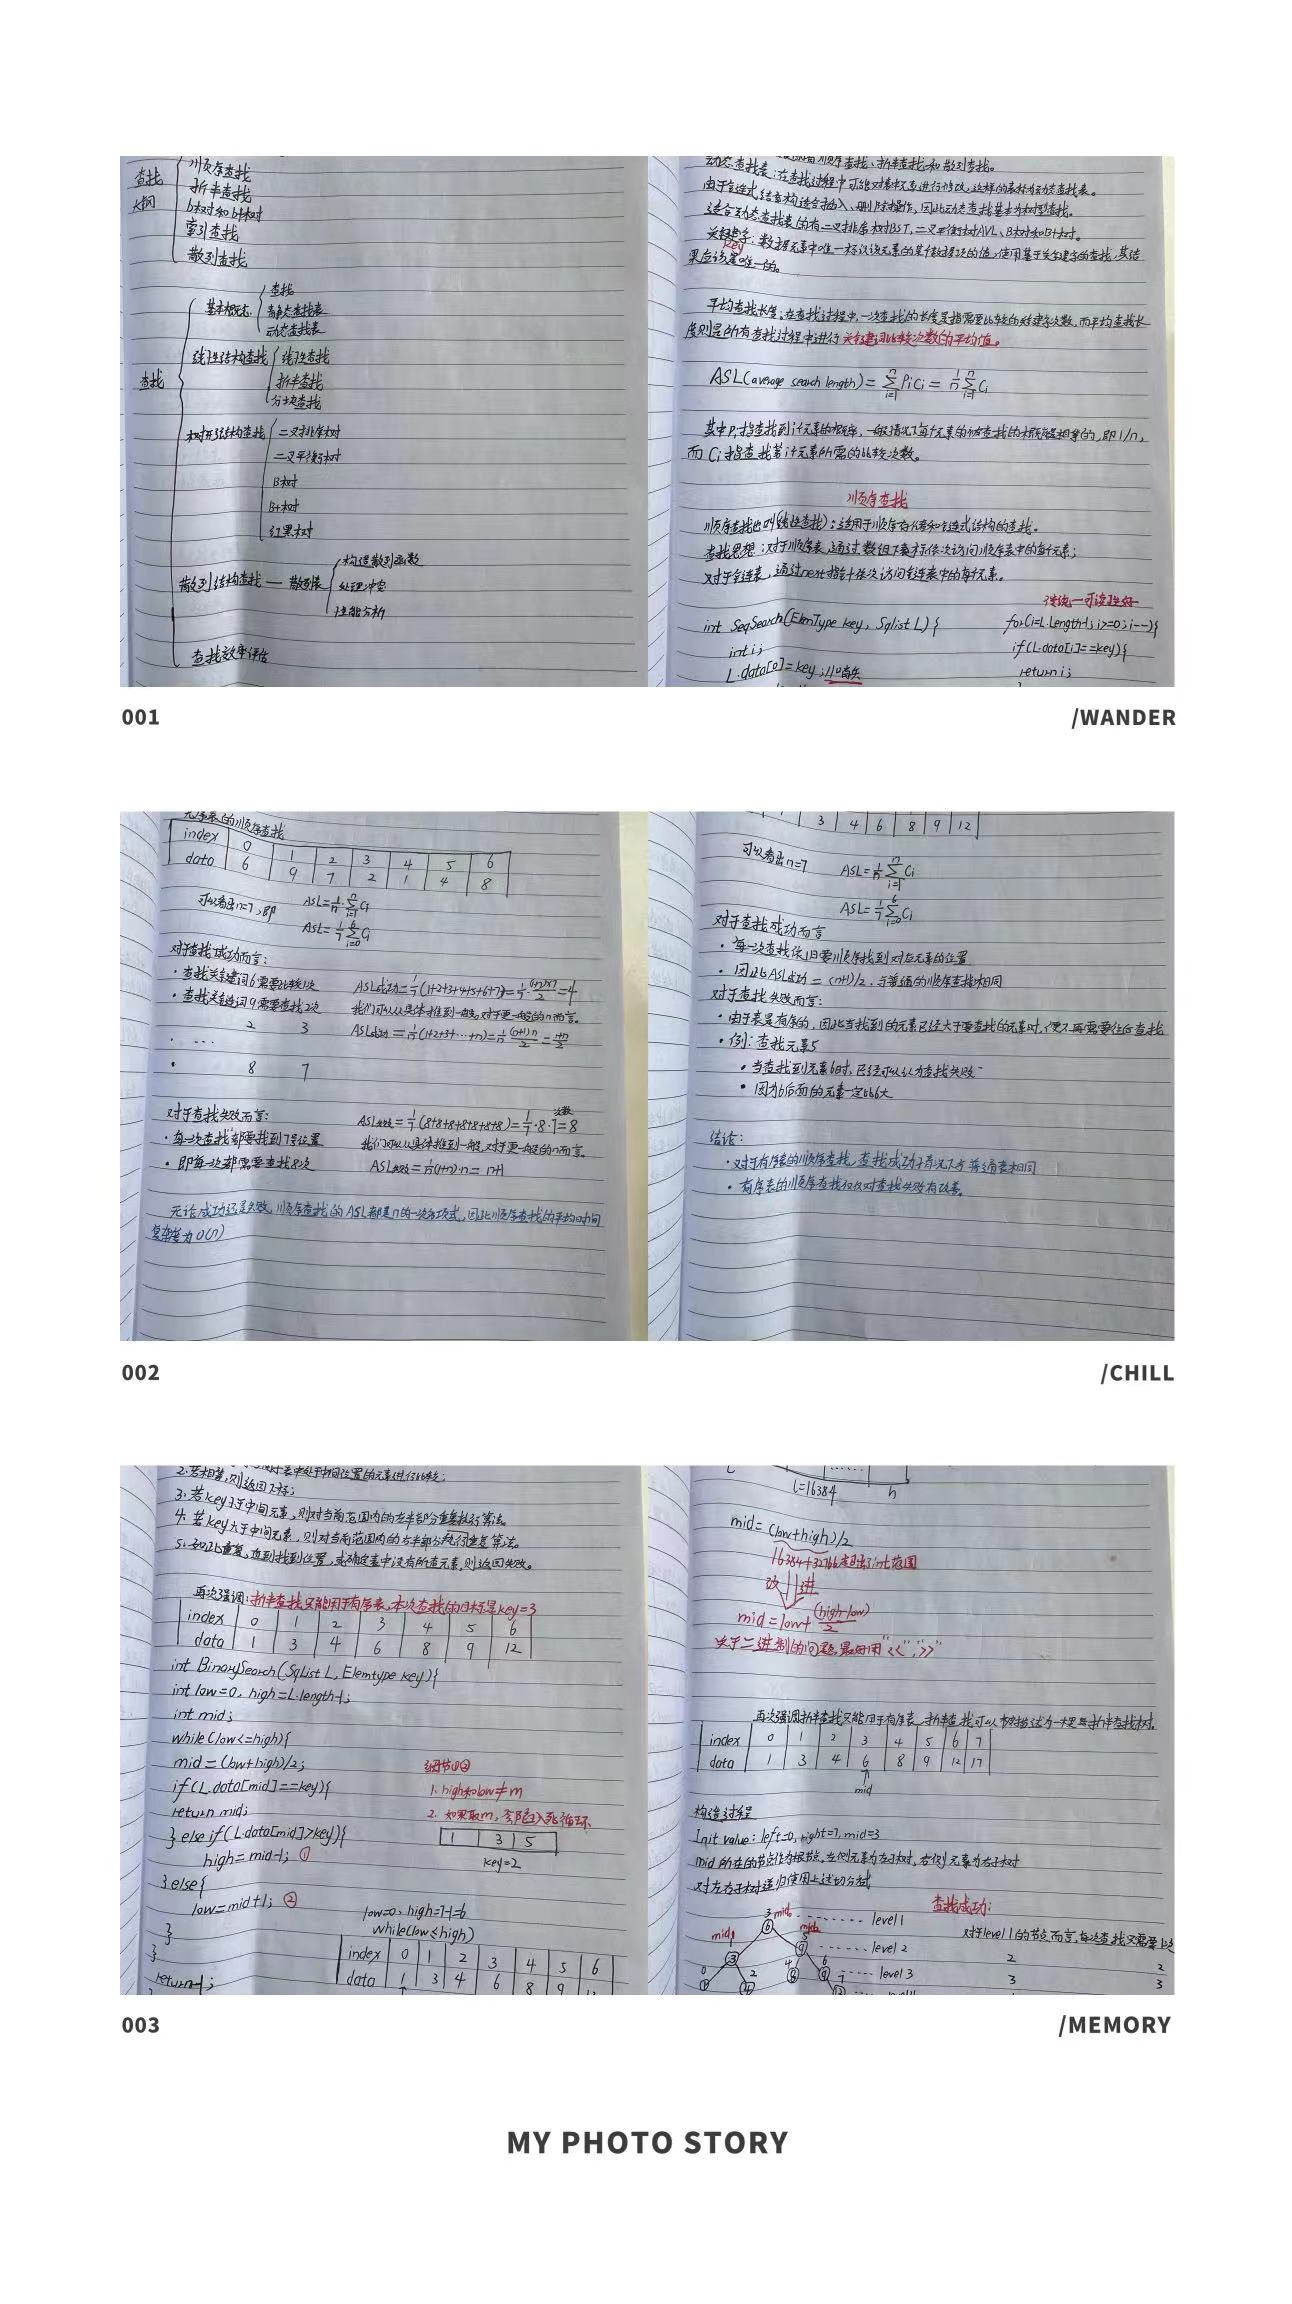 查找
大纲
顺序查找
折半查找
b树和b+树
索引查找
散列查找
查找
基本概念
查找
静态查找表
动态查找表
线性结构查找
线性查找
折半查找
分块查找
树形结构查找
二叉排序树
二叉平衡树
B树
B+树
红黑树
散列结构查找 — 散列表
构造散列函数
处理冲突
性能分析
查找效率评估
顺序查找、折半查找和散列查找。
动态查找表:在查找过程中可能对表中元素进行修改,这样的表称为动态查找表。
由于链式结构适合插入、删除操作,因此动态查找基本为树型查找。
适合动态查找表的有二叉排序树BST,二叉平衡树AVL、B树和B+树。
关键字:数据元素中唯一标识该元素的某个数据项的值,使用基于关键字的查找,其结
key
果应该是唯一的。
平均查找长度:在查找过程中,一次查找的长度是指需要比较的关键字次数,而平均查找长
度则是所有查找过程中进行关键词比较次数的平均值。
ASL(average search length)=∑PiCi=1/n∑Ci
其中Pi指查找到i个元素的概率,一般情况下每个元素的被查找的概率是相等的,即1/n,
而Ci指查找第i个元素所需的比较次数。
顺序查找
顺序查找也叫(线性查找):适用于顺序存储和链式结构的查找。
查找思想:对于顺序表,通过数组下标依次访问顺序表中的每个元素;
对于链表,通过next指针依次访问链表中的每个元素。
int SeqSearch(ElemType key, Sqlist L){
int i;
L.data[0]=key;//0
for(i=L.Length-1;i>=0;i--){
if(L.data[i]==key){
return i;
001
/WANDER
无序表的顺序查找
index 0 1 2 3 4 5 6
data 6 9 7 2 1 4 8
可以看出n=7,即
ASL=1/n·∑Ci
ASL=1/7∑Ci
对于查找成功而言:
·查找关键词6需要比较1次
·查找关键词9需要查找2次
2 3
· ...
· 8 7
ASL成功=1/7(1+2+3+4+5+6+7)=1/7·(1+7)×7/2=4
我们可以从具体推到一般,对于更一般的n而言。
ASL成功=1/n(1+2+3+…+n)=1/n·(1+n)n/2=(1+n)/2
对于查找失败而言:
·每一次查找都要找到7号位置
·即每一次都需要查找8次
次数
ASL失败=1/7(8+8+8+8+8+8+8)=1/7·8·7=8
我们可以从具体推到一般,对于更一般的n而言。
ASL失败=1/n(1+n)·n=n+1
无论成功还是失败,顺序查找的ASL都是n的一次多项式,因此顺序查找的平均时间
复杂度为O(n)
3 4 6 8 9 12
可以看出n=7
ASL=1/n∑Ci
ASL=1/7∑Ci
对于查找成功而言
·每一次查找依旧要顺序找到对应元素的位置
·因此ASL成功=(n+1)/2,与普通的顺序查找相同
对于查找失败而言:
·由于表是有序的,因此当找到的元素已经大于要查找的元素时,便不再需要往后查找
·例:查找元素5
·当查找到元素6时,已经可以认为查找失败
·因为6后面的元素一定比6大
结论:
·对于有序表的顺序查找,查找成功情况下与普通表相同
·有序表的顺序查找仅仅对查找失败有改善。
002
/CHILL
表中处于中间位置的元素进行比较;
2.若相等,则返回下标;
3.若key小于中间元素,则对当前范围内的左半部分重复执行算法。
4.若key大于中间元素,则对当前范围内的右半部分执行重复算法。
5.如此重复,直到找到位置,或确定表中没有所查元素,则返回失败。
再次强调:折半查找只能用于有序表,本次查找的目标是key=3
index 0 1 2 3 4 5 6
data 1 3 4 6 8 9 12
int BinarySearch(SqList L, Elemtype key){
int low=0, high=L.length-1;
int mid;
while(low<=high){
mid=(low+high)/2;
if(L.data[mid]==key){
return mid;
}else if(L.data[mid]>key){
high=mid-1; ①
}else{
low=mid+1; ②
}
}
return-1;
细节①②
1. high和low≠m
2. 如果取m,会陷入死循环
1 3 5
key=2
low=0, high=7-1=6
while(low≤high)
index 0 1 2 3 4 5 6
data 1 3 4 6 8 9
l=16384 h
mid=(low+high)/2
16384+32766超出了int范围
改 进
mid=low+(high-low)/2
关于二进制的问题,最好用“<<”,“>>”
再次强调折半查找只能用于有序表,折半查找可以被描述为一棵折半查找树。
index 0 1 2 3 4 5 6 7
data 1 3 4 6 8 9 12 17
mid
构造过程
Init value: left=0, right=7, mid=3
mid所在的节点作为根节点,左侧元素为左子树,右侧元素为右子树
对左右子树递归使用上述切分方式
查找成功:
3 mid ········ level 1
对于level 1的节点而言,每次查找只需要1次
mid ······ level 2
2 2
······ level 3
3 3
003
/MEMORY
MY PHOTO STORY